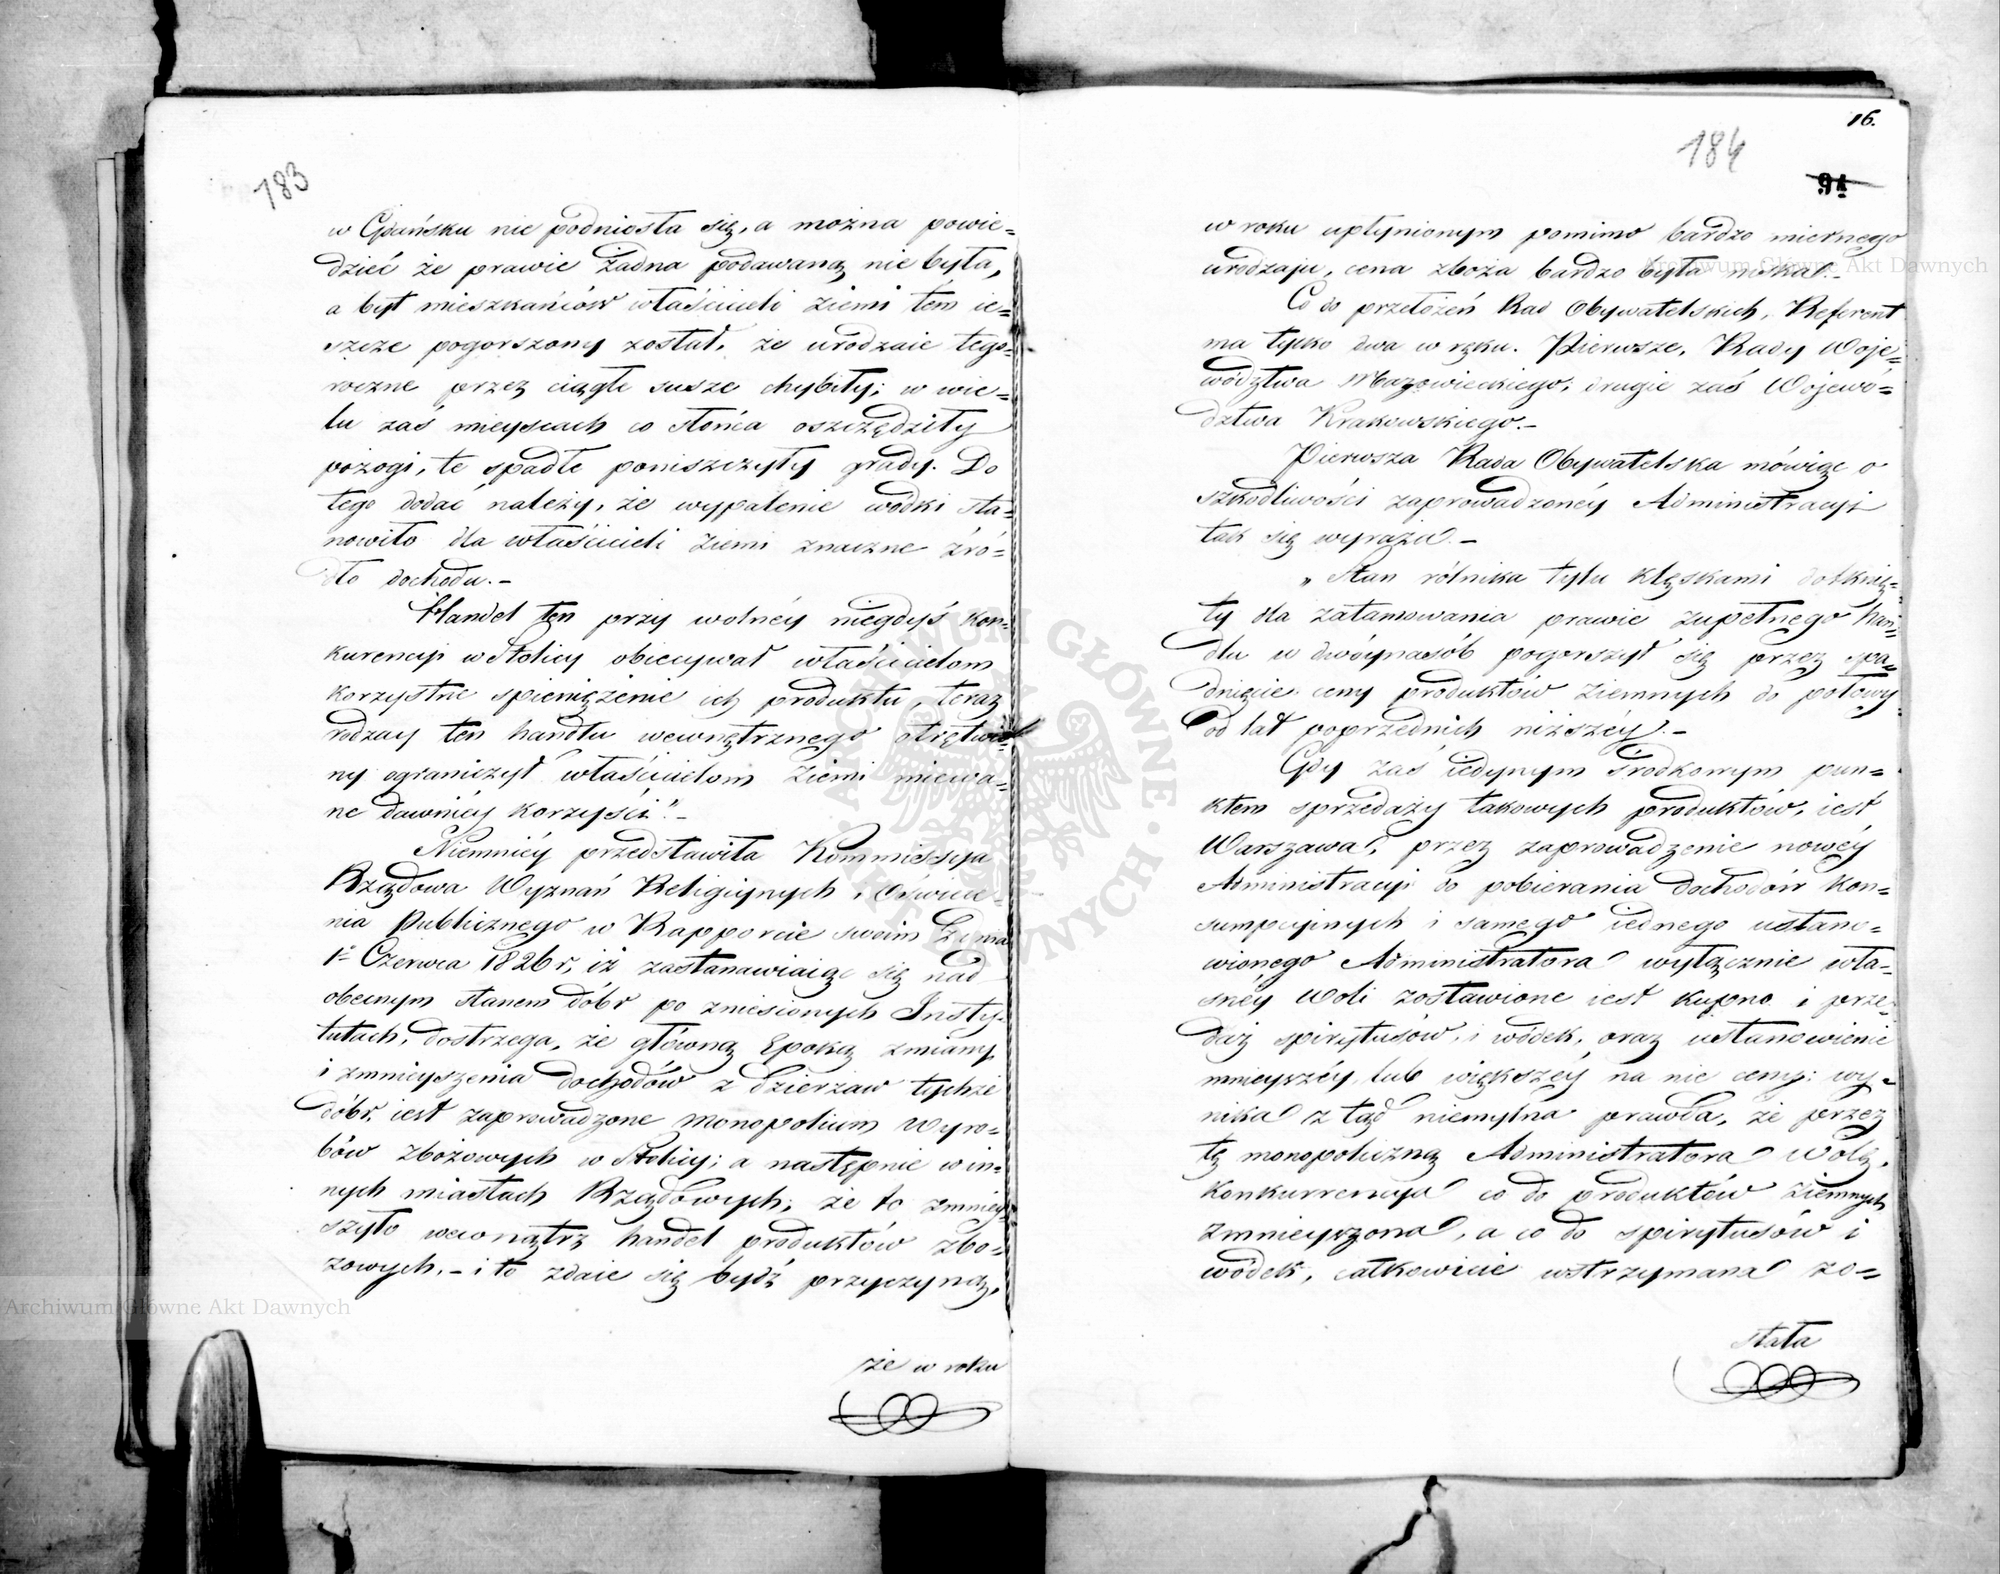 183
w Gdańsku nie podniosła się, a można powie=
dzieć że prawie żadna podawaną nie była,
a byt mieszkańców właścicieli ziemi tém ie=
szcze pogorszony został, że urodzaie tego=
roczne przez ciągłe susze chybiły; w wie=
lu zaś mieyscach co słońca oszczędziły
pożogi, te spadłe poniszczyły grady. Do
tego dodać należy, że wypalenie wódki sta=
nowiło dla właścicieli ziemi znaczne źró=
dło dochodu.-
Handel ten przy wolnéy niegdyś kon=
kurencyi w Stolicy obiecywał właścicielom
korzystne spieniężenie ich produktu, teraz
rodzay ten handlu wewnętrznego otrętwio=
ny ograniczył właścicielom ziemi miewa=
ne dawniéy korzyści."-
Niemniéy przedstawiła Kommissya
Rządowa Wyznań Religijnych i Oświece=
nia Publicznego w Rapporcie swoim z dnia
1º Czerwca 1826 r, iż zastanawiaiąc się nad
obecnym stanem dóbr po zniesionych Insty=
tutach, dostrzega, że główną Epoką zmiany
i zmnieyszenia dochodów z dzierżaw tychże
dóbr, iest zaprowadzone monopolium wyro=
bów zbożowych w Stolicy; a następnie w in=
nych miastach Rządowych; że to zmniéy=
szyło wewnątrz handel produktów zbo=
żowych.- i to zdaie się bydź przyczyną,
że w roku
16.
184
94
w roku upłynionym pomimo bardzo miernego
urodzaju, cena zboża bardzo była niska.-
Co do przełożeń Rad Obywatelskich, Referent
ma tylko dwa w ręku. Pierwsze, Rady Woje=
wództwa Mazowieckiego, drugie zaś Wojewó=
dztwa Krakowskiego.-
Pierwsza Rada Obywatelska mówiąc o
szkodliwości zaprowadzonéy Administracyi
tak się wyraża.-
„Stan rólnika tylu klęskami dotknię=
ty dla zatamowania prawie zupełnego han=
dlu w dwóynasób pogorszył się przez spa=
dnięcie ceny produktów ziemnych do połowy
od lat poprzednich niższéy.-
Gdy zaś iedynym środkowym pun=
ktem sprzedaży takowych produktów, iest
Warszawa, przez zaprowadzenie nowéy
Administracyi do pobierania dochodów kon=
sumpcyinych i samego iednego ustano=
wionego Administratora wyłącznie wła=
snéy woli zostawione iest kupno i prze=
daż spirytusów, i wódek, oraz ustanowienie
mnieyszéy lub większéy na nie ceny; wy=
nika z tąd niemylna prawda, że przez
tę monopoliczną Administratora wolę,
konkurrencya co do produktów ziemnych
zmnieyszona, a co do spirytusów i
wódek, całkowicie wstrzymana zo=
stała
Archiwum Główne Akt Dawnych
Archiwum Główne Akt Dawnych
ARCHIWUM GŁÓWNE AKT DAWNYCH